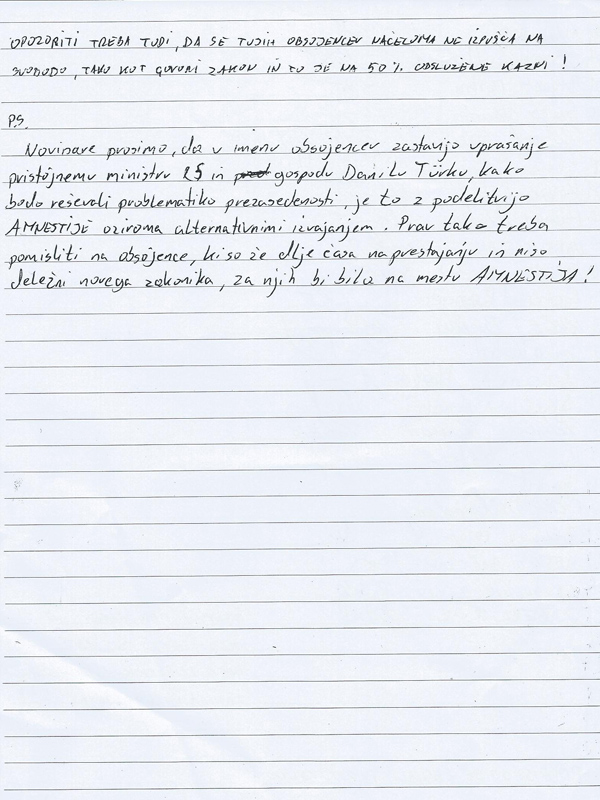 OPOZORITI TREBA TUDI, DA SE TUJIH OBSOJENCEV NAČELOMA NE IZPUŠČA NA
SVOBODO, TAKO KOT GOVORI ZAKON IN TO JE NA 50% ODSLUŽENE KAZNI!
P.S.
Novinare prosimo, da v imenu obsojencev zastavijo vprašanje
pristojnemu ministru in gospodu Danilu Türku, kako
bodo reševali problematiko prezasedenosti, je to z podelitvijo
AMNESTIJE oziroma alternativnimi izvajanjem. Prav tako treba
pomisliti na obsojence, ki so že dlje časa na prestajanju in niso
deležni novega zakonika, za njih bi bila na mestu AMNESTIJA!